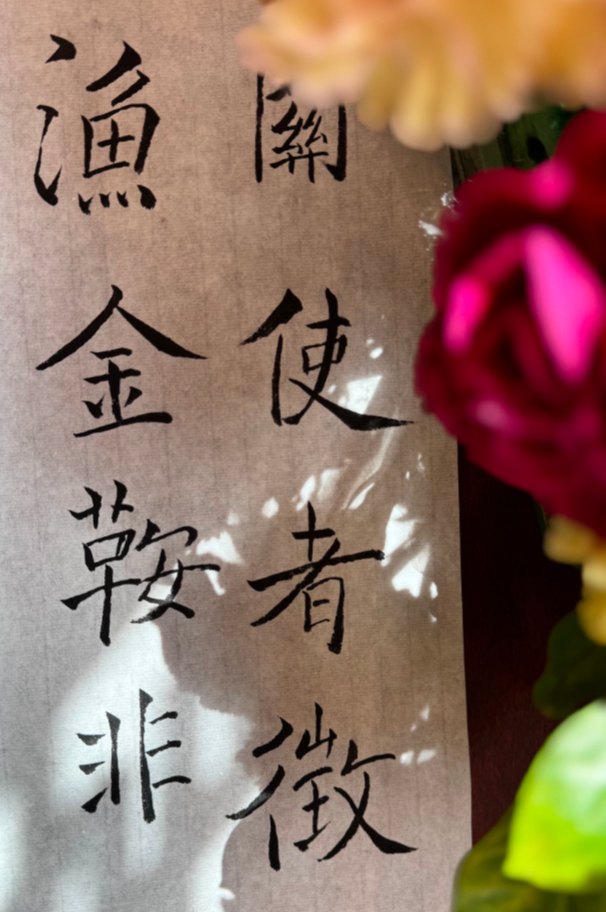 關使者徵
漁金鞍非